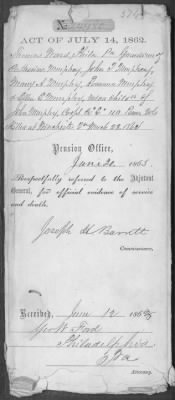 ACT OF JULY 14, 1862.
Thomas Ward, Phila Pa Guardian of
Catharine Murphy, John T Murphy,
Mary A Murphy, Murphy
& Ellen E Murphy, minor child'n of
John Murphy Corpl Co "E" 110 Penn Vols
Killed at Winchester Va March 23. 1862
Pension Office,
June 20 1865.
Respectfully referred to the Adjutant
General, for official evidence of service
and death.
Joseph H Barrett
Commissioner.
Received, June 12 1865
Geo W Ford
Philadelphia
Pa
Attorney.